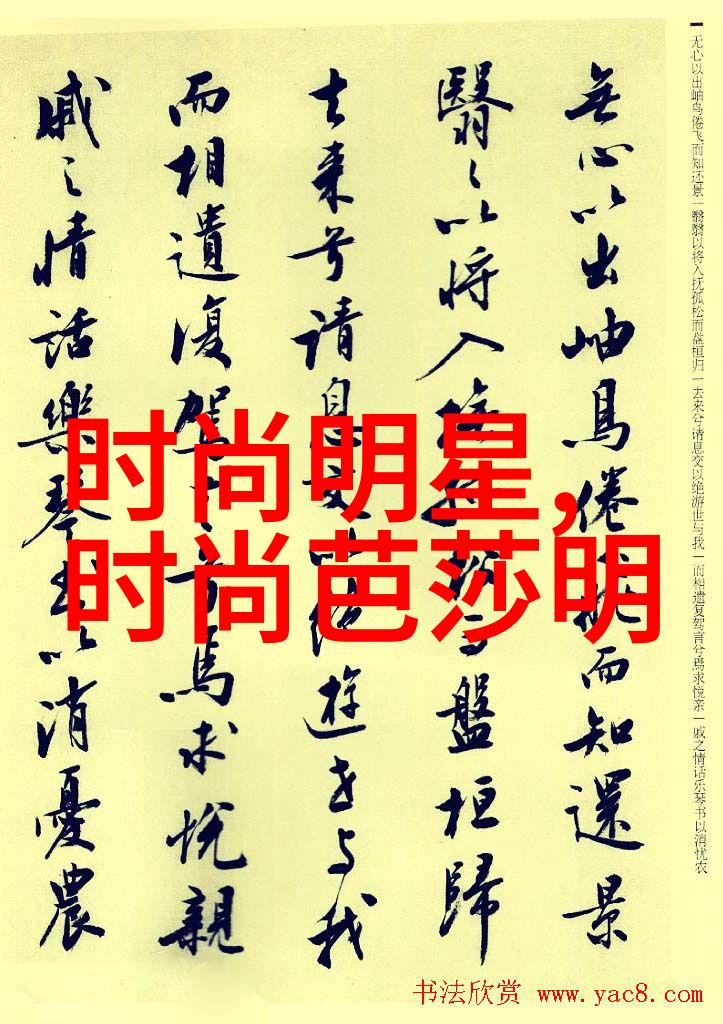 无心以出岫鸟倦飞而知还景一翳翳以将入抚孤松而盘桓归一去来兮请息交以绝游世与我一而相遗复驾言兮焉求悦亲一戚之情话乐琴书以消忧农
無心以出岫鳥倦飛而知還景
翳々以将入撫孤松而盤桓歸
去来兮请息交以绝遊世与我
而相遺復駕言兮焉求悦親
戚之情話樂琴書以消憂農
时尚明星,
时尚芭莎明
书法欣赏 www.yac8.com